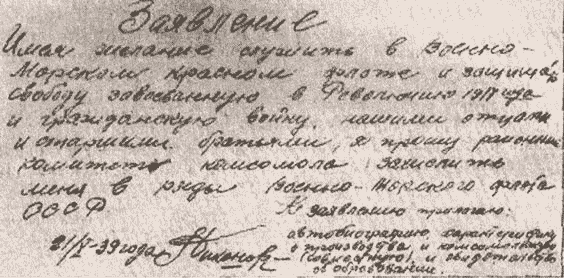 Заявление
Имея желание служить в Военно-
Морском Красном флоте и защища
свободу завоеванную в Революцию 1917 года
и гражданскую войну, нашими отцами
и старшими братьями, я прошу районный
комитет комсомола зачислить
меня в ряды Военно-Морского флота
СССР
К заявлению прилагаю:
автобиографию, характеристику
с производства и комсомольскую
(совместную) и свидетельство
об образовании.
39 года